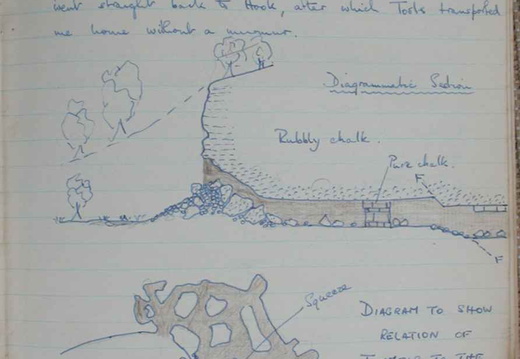 went straight back to Hook, after which Toots transported
me home without a murmur.
Diagrammatic Section
Rubbly chalk.
Pure chalk.
F
F
Squeeze
DIAGRAM TO SHOW
RELATION OF
TO THE